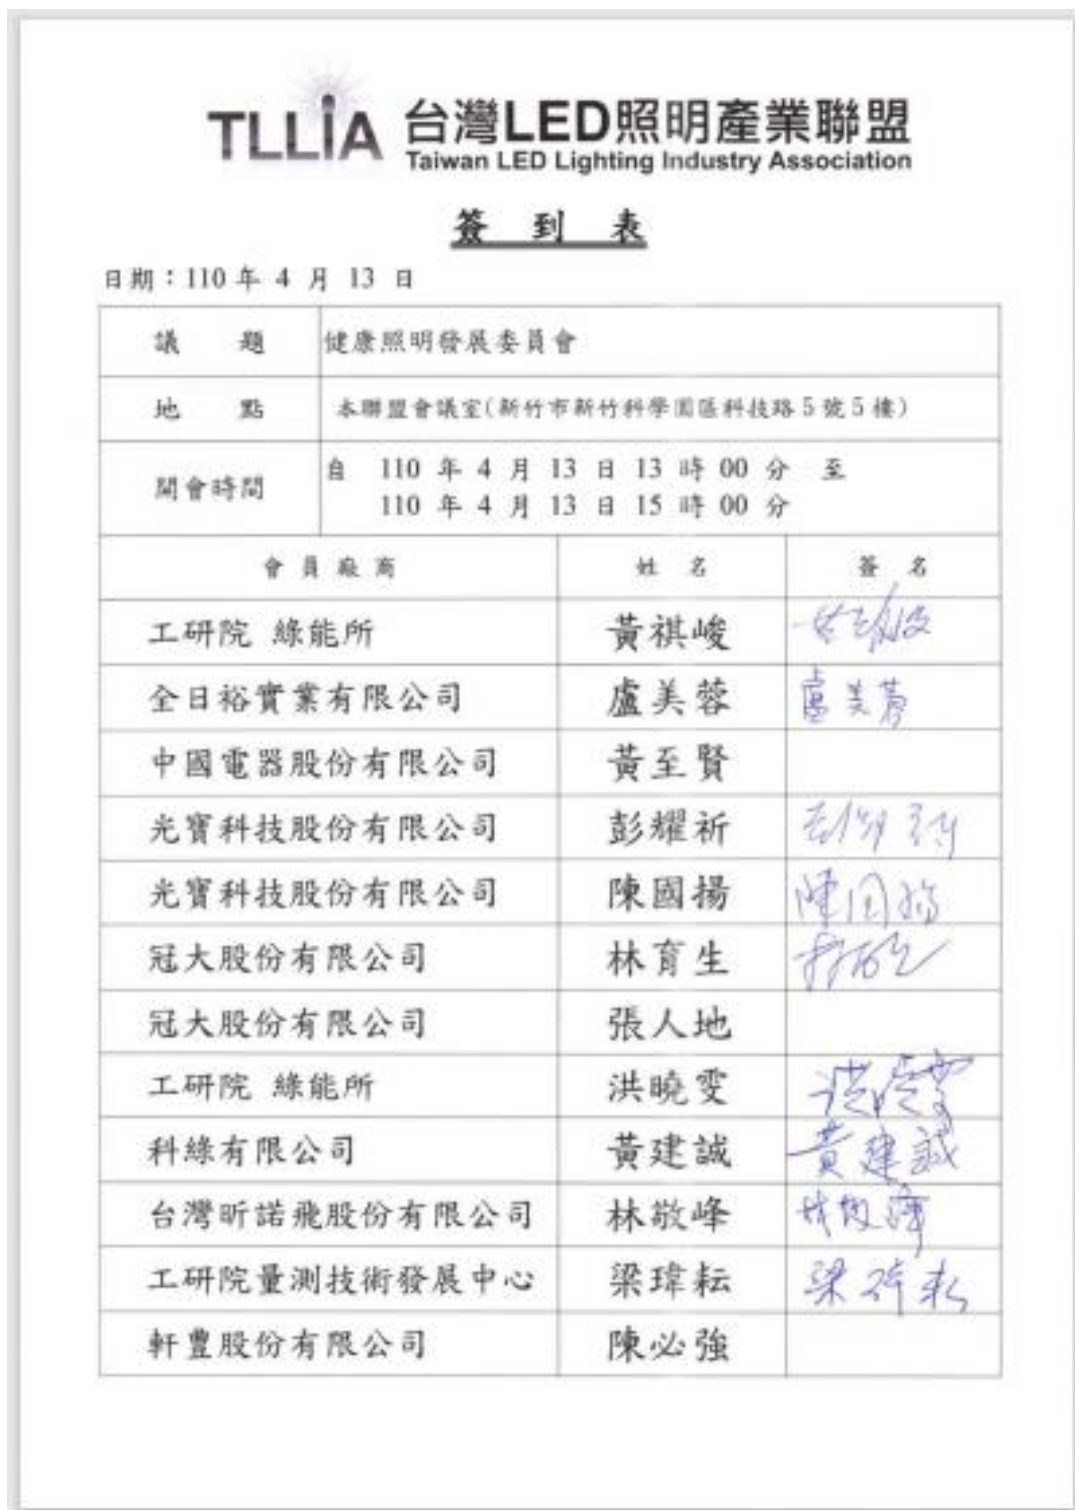 TLLiA 台灣LED照明產業聯盟
Taiwan LED Lighting Industry Association
簽 到 表
日期：110 年 4 月 13 日
議 題 健康照明發展委員會
地 點 本聯盟會議室(新竹市新竹科學園區科技路5號5樓)
開會時間 自 110 年 4 月 13 日 13 時 00 分 至
110 年 4 月 13 日 15 時 00 分
會員廠商 姓 名 簽 名
工研院 綠能所 黃祺峻
全日裕實業有限公司 盧美蓉 盧美蓉
中國電器股份有限公司 黃至賢
光寶科技股份有限公司 彭耀祈
光寶科技股份有限公司 陳國揚 陳国揚
冠大股份有限公司 林育生
冠大股份有限公司 張人地
工研院 綠能所 洪曉雯 洪曉雯
科綠有限公司 黃建誠 黃建誠
台灣昕諾飛股份有限公司 林敬峰 林敬峰
工研院量測技術發展中心 梁瑋耘 梁瑋耘
軒豐股份有限公司 陳必強